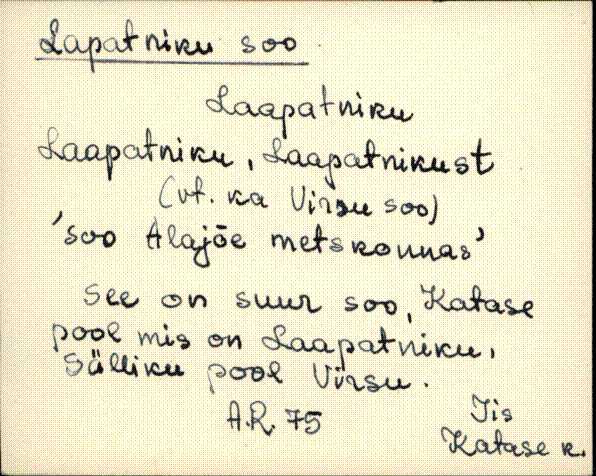 Lapatniku soo
Laapatniku
Laapatniku, Laapatnikust
(vt. ka Virsu soo)
'soo Alajõe metskonnas'
See on suur soo, Katase
pool mis on Laapatniku,
Sälliku pool Virsu.
A.R. 75
Iis
Katase k.